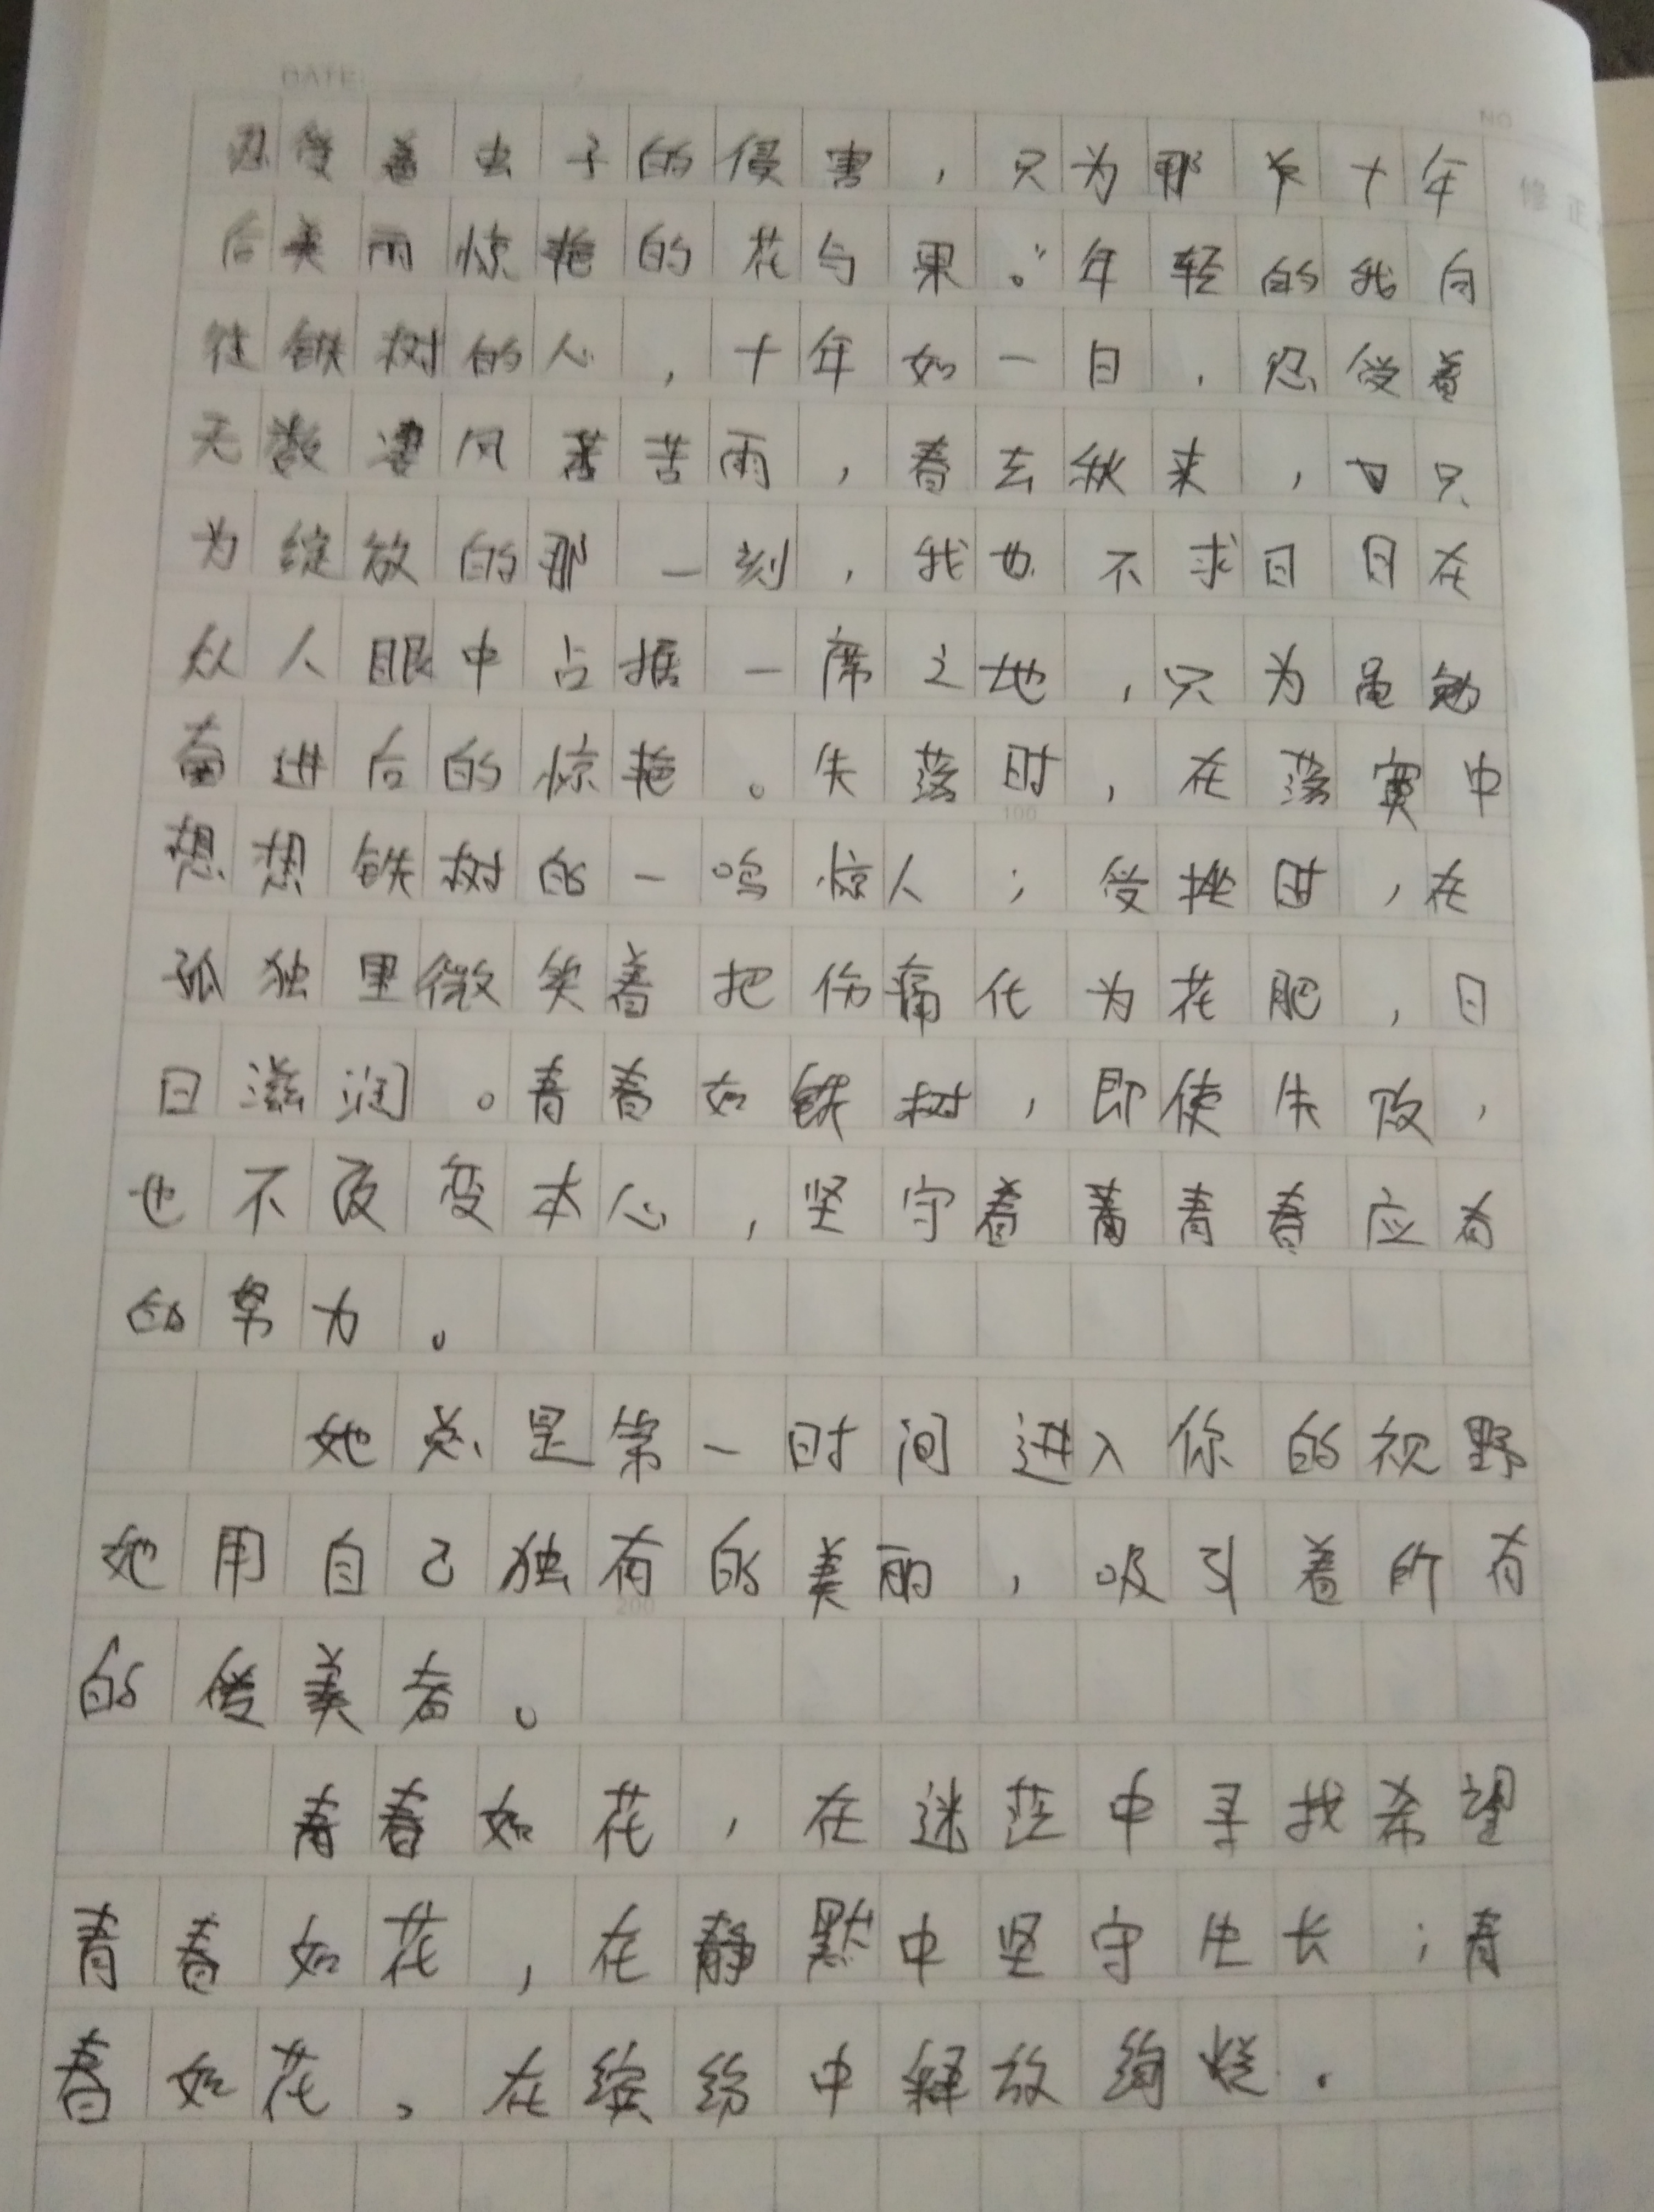 DATE:
NO
修正
忍受着虫子的侵害，只为那年十年
后美而惊艳的花与果。”年轻的我向
往铁树的人，十年如一日，忍受着
无数凄风苦雨，春去秋来，只
为绽放的那一刻，我也不求日日在
众人眼中占据一席之地，只为黾勉
奋进后的惊艳。失落时，在落寞中
想想铁树的一鸣惊人；受挫时，在
孤独里微笑着把伤痛化为花肥，日
日滋润。青春如铁树，即使失败，
也不改变本心，坚守着青春应有
的努力。
她总是第一时间进入你的视野
她用自己独有的美丽，吸引着所有
的爱美者。
青春如花，在迷茫中寻找希望
青春如花，在静默中坚守生长；青
春如花，在缤纷中释放绚烂.
100
200